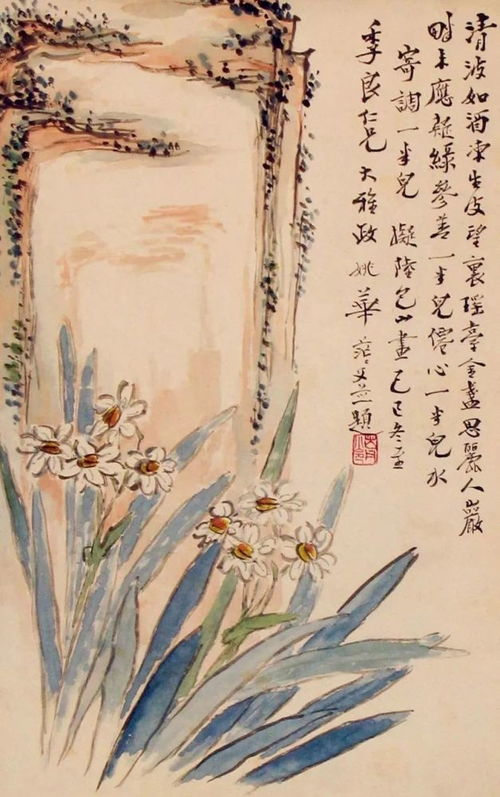 清波如酒凍生皮望裏瑤臺金盞思麗人巖
畔未應疑綠參差一半兒僊心一半兒水
寄調一半兒 擬陸包山畫己巳冬至
季良仁兄大雅政 姚華 茫父並題